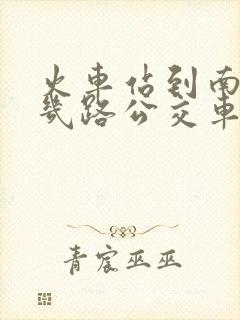 火车佔到南
几路公交车
青宸巫巫